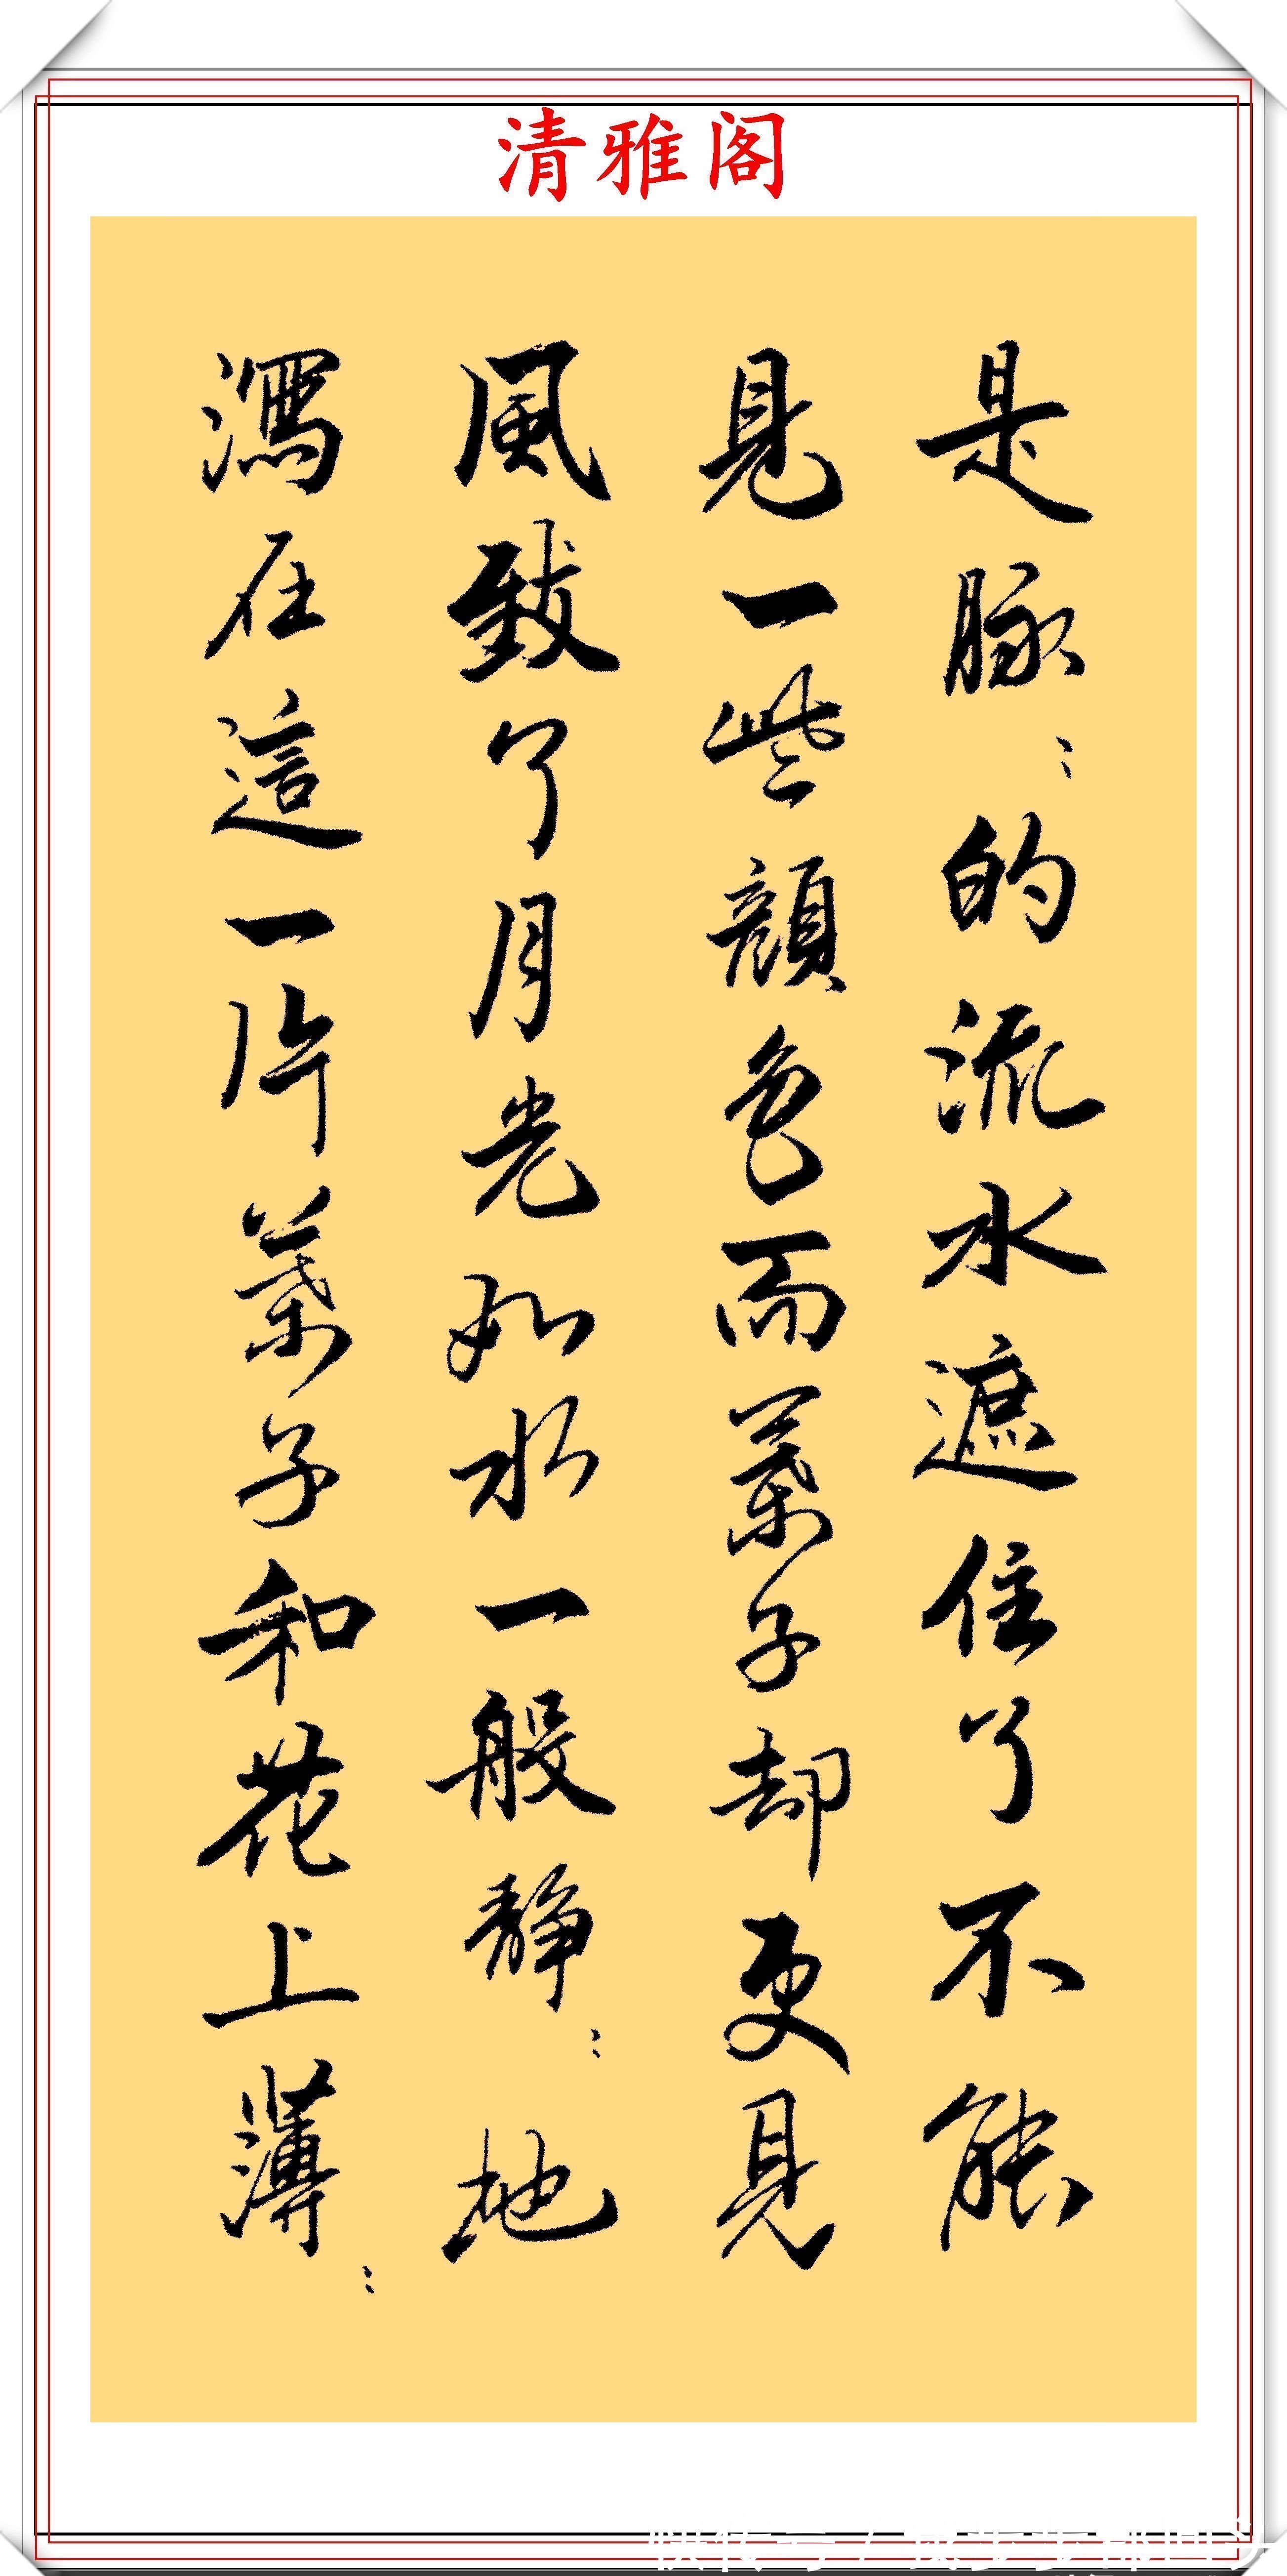 清雅阁
是脉〻的流水遮住了不能
見一些顔色而葉子却更見
風致了月光如水一般静〻地
瀉在這一片葉子和花上薄〻